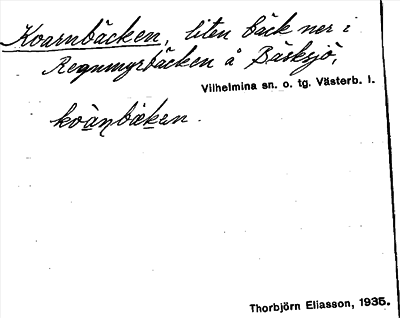 Kvarnbäcken, liten bäck ner i
Regnmyrbäcken å Bäsksjö,
Vilhelmina sn. o. tg. Västerb. l.
kvànbäken.
Thorbjörn Eliasson, 1935.